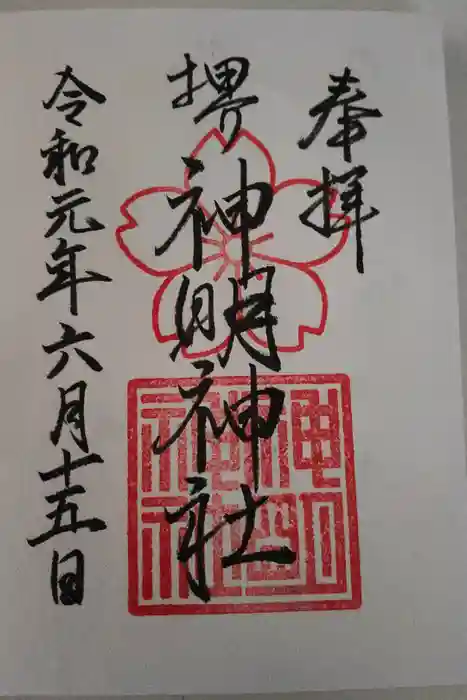 奉拝
堺神明神社
令和元年六月十五日
神明
神社